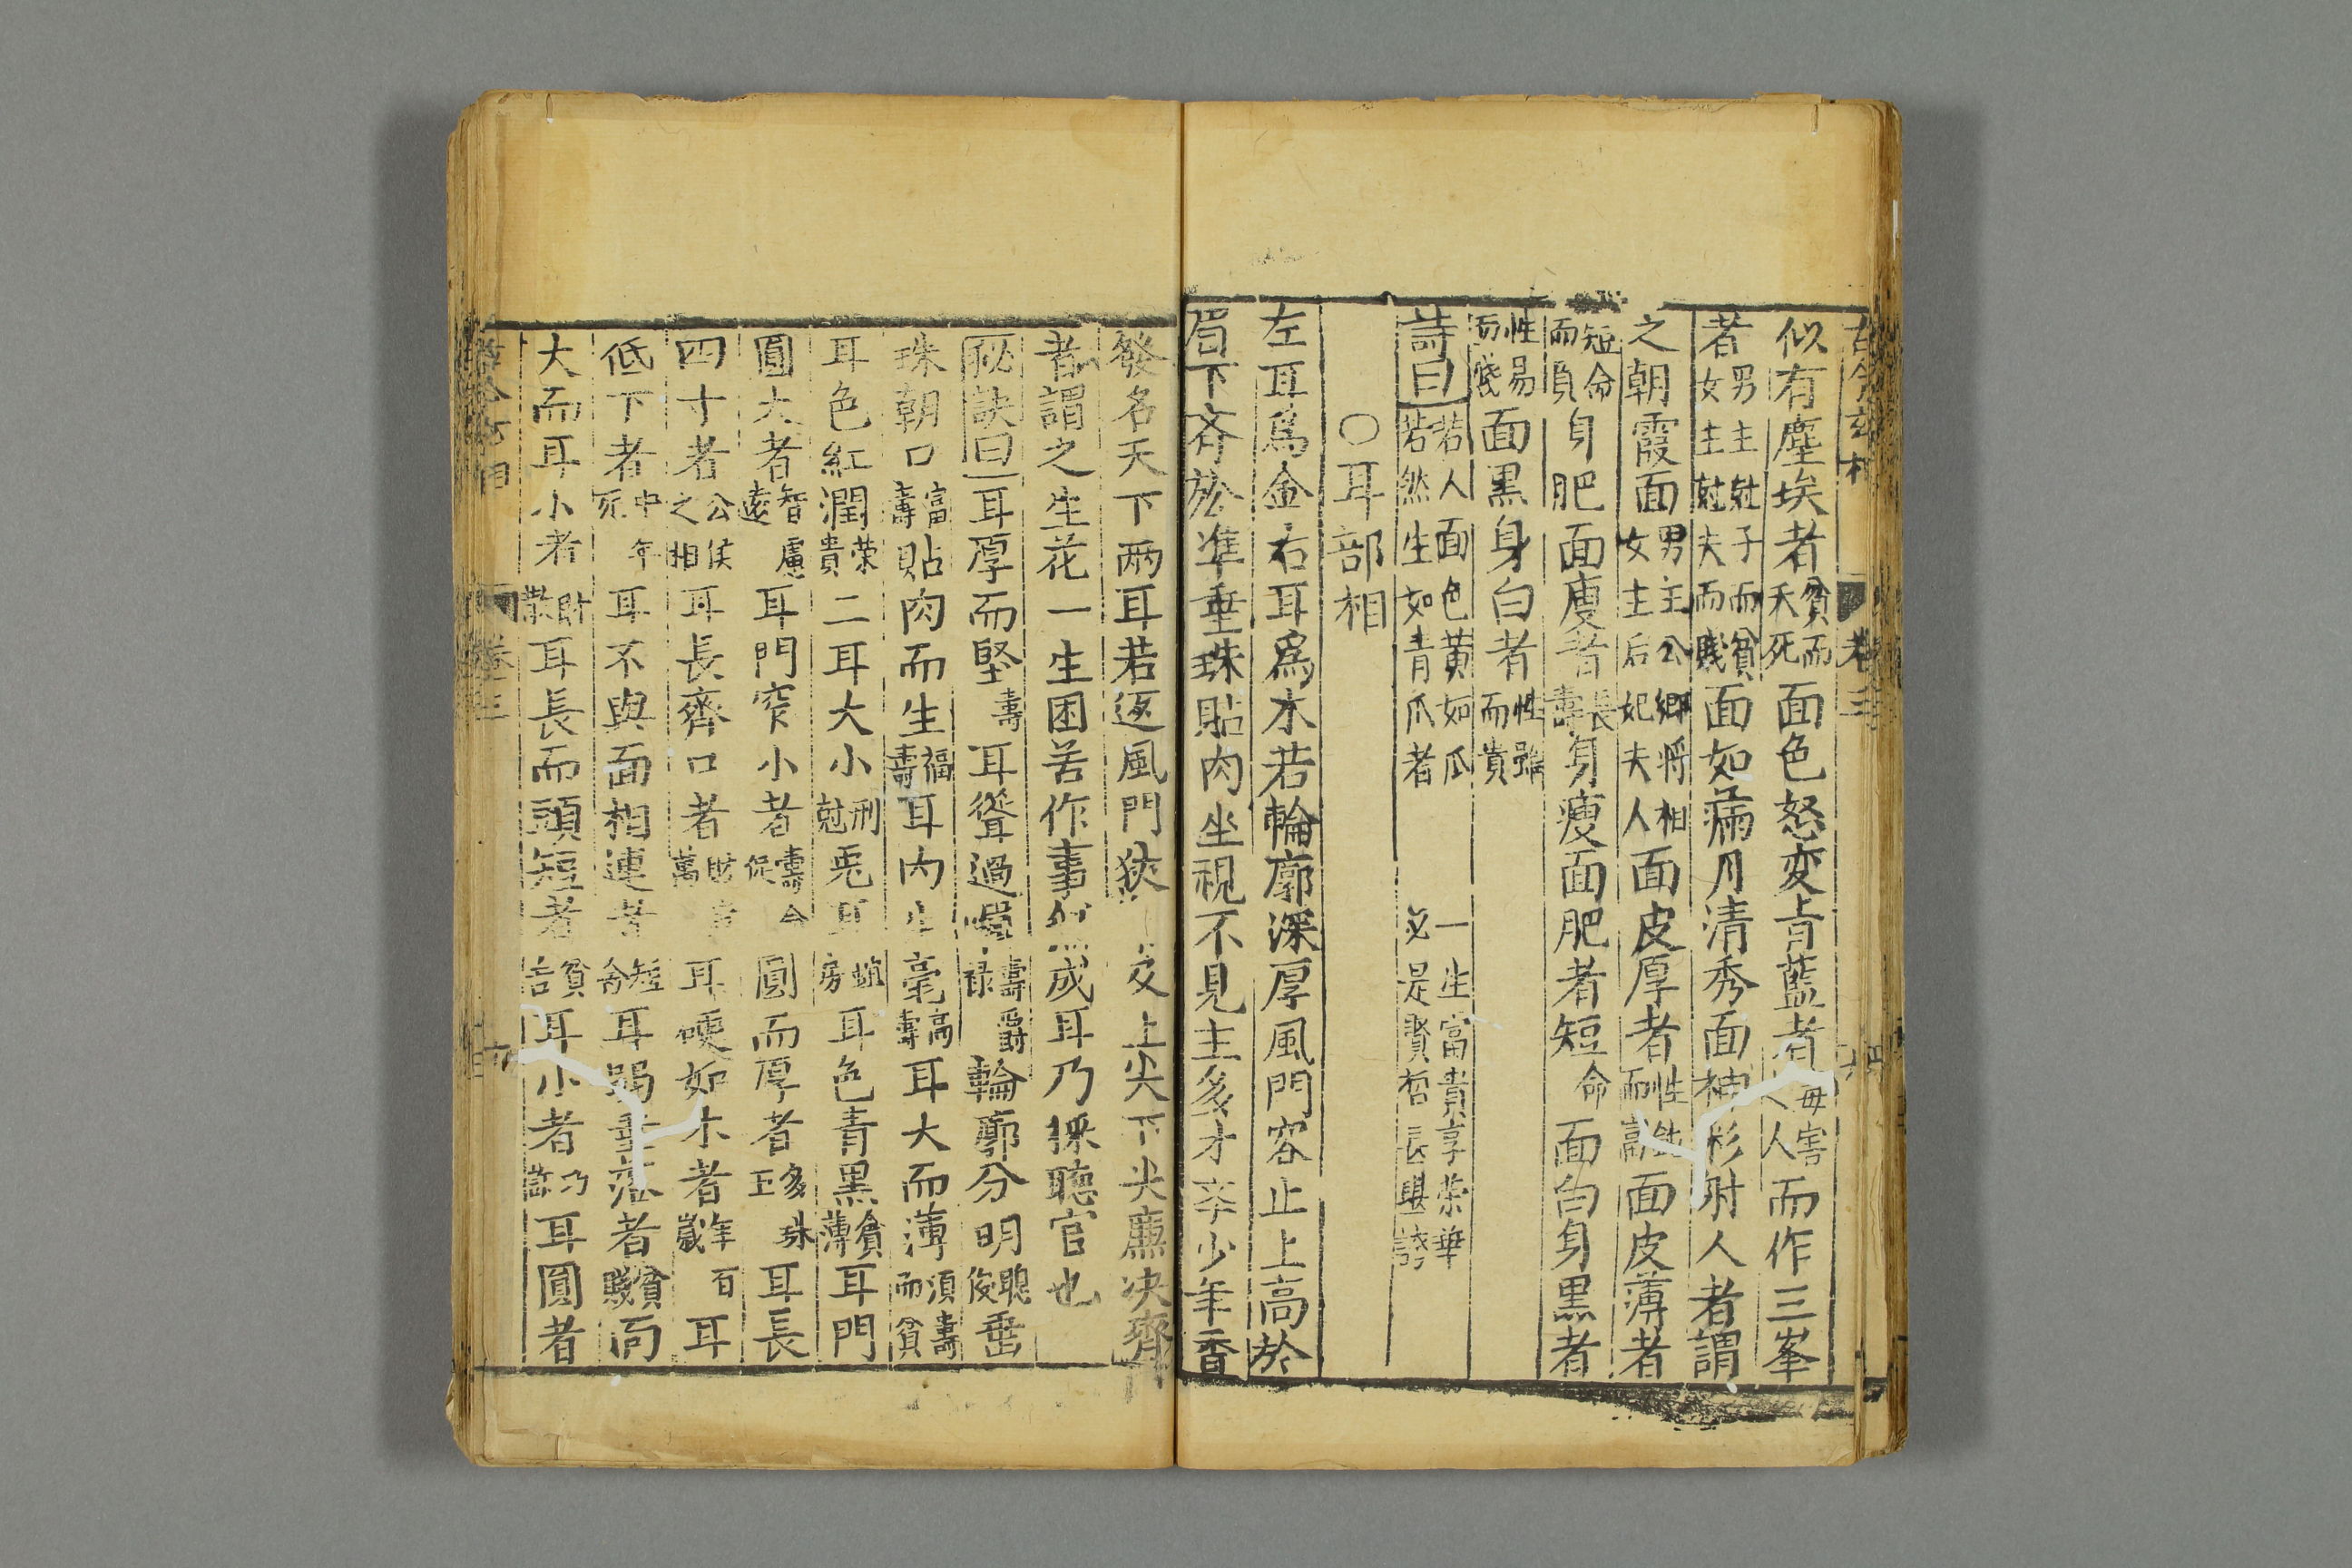 似有塵埃者貧而夭死面色怒変青藍者毋害人人而作三峯
者男主尅子而貧女主尅夫而賎面如滿月清秀面神彩射人者謂
之朝霞面男主公卿将相女主后妃夫人面皮厚者性純而富面皮薄者
短命而貧身肥面瘦者長壽身瘦面肥者短命面白身黒者
性易而賤面黒身白者性難而貴
詩曰若人面色黄如瓜一生富貴享荣華若然生如青爪者必是賢哲長興誇
〇耳部相
左耳爲金右耳爲木若輪廓深厚風門容止上高於
眉下齐於準垂珠貼肉坐視不見主多才卒少年香
發名天下两耳若返風門狭上尖下尖廉决齊
者謂之生花一生困苦作事成耳乃採聽官也
秘訣曰耳厚而堅壽耳聳過眉壽爵禄輪廓分明聰俊垂
珠朝口富壽貼肉而生福壽耳内生毫高壽耳大而薄須壽而貧
耳色紅潤荣貴二耳大小刑尅兎耳房耳色青黒貧薄耳門
圓大者智慮遠耳門窄小者壽命促圓而厚者多珠玉耳長
四寸者公侯之相耳長齊口者財萬耳硬如木者年百歲耳
低下者中年死耳不與面相連者短命耳弱垂落者貧賤面
大而耳小者財散耳長而頭短者貧苦耳小者乃耳圓者
卷三